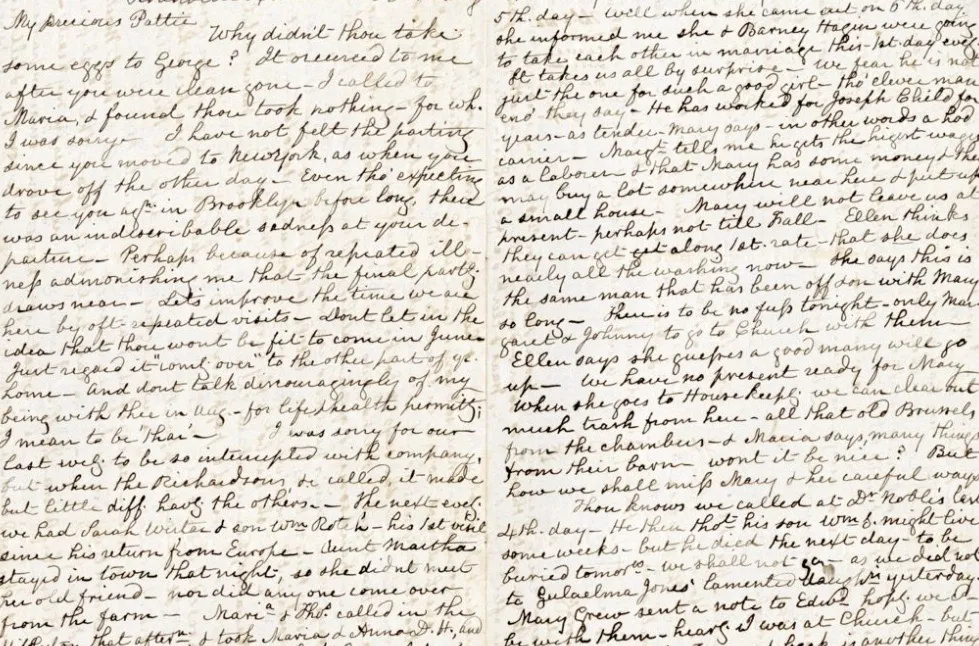 My precious Pattie
Why didn't thou take
some eggs to George? It occurred to me
after you were clean gone - I called to
Maria, & found thou took nothing - for wh.
I was sorry - I have not felt the parting
since you moved to New York, as when you
drove off the other day - Even tho' expecting
to see you agn. in Brooklyn before long, there
was an indescribable sadness at your de-
parture - Perhaps because of repeated ill-
ness admonishing me that the final partg.
draws near - Let's improve the time we are
here by oft-repeated visits - Dont let in the
idea that thou wont be fit to come in June
Just regard it "comg. over" to the other part of yr.
home - And dont talk discouragingly of my
being with thee in Aug. - for life & health permittg.
I mean to be "thar" - I was sorry for our
last eveg. to be so interrupted with company,
but when the Richardsons &c called, it made
but little diff. havg. the others. - The next eveg.
we had Sarah & son Wm Rot - his 1st visit
since his return from Europe - Aunt Martha
stayed in town that night, so she didnt meet
her old friend - nor did any one come over
from the farm - Maria & Thos. called in the
that aftern. & took Maria & Anna D. H., and
5th. day - Well when she came out on 6th. day
she informed me she & Barney Hagan were going
to take each other in marriage this 1st. day eveg
It takes us all by surprise - We fear he is not
just the one for such a good girl - tho' clever man
eno' they say - He has worked for Joseph Child for
years - as tender - Mary says - in other words a hod
carrier - Margt. tells me he gets the highest wages
as a laborer - & that Mary has some money &
may buy a lot somewhere near here & put up
a small house - Mary will not leave us at
present - perhaps not till Fall - Ellen thinks
they can get get along 1st. rate - that she does
nearly all the washing now - She says this is
the same man that has been off & on with Mary
so long - There is to be no fuss tonight - only Mar-
garet & Johnny to go to Church with them -
Ellen says she guesses a good many will go
up - We have no present ready for Mary
When she goes to Housekeepg. we can clear out
much trash from here - all that old Brussels
from the chambers - & Maria says, many things
from their barn - wont it be nice? But
how we shall miss Mary & her careful ways
Thou knows we called at Dr. Noble's last
4th. day - He then thot. his son Wm might live
some weeks - but he died the next day - to be
buried tomorw. - we shall not go - as we did not
to Gulaelma Jones' lamented yesterday
Mary Grew sent a note to Edwd. hopg. we wd.
be with them - hearg. I was at Church - but
is another thing